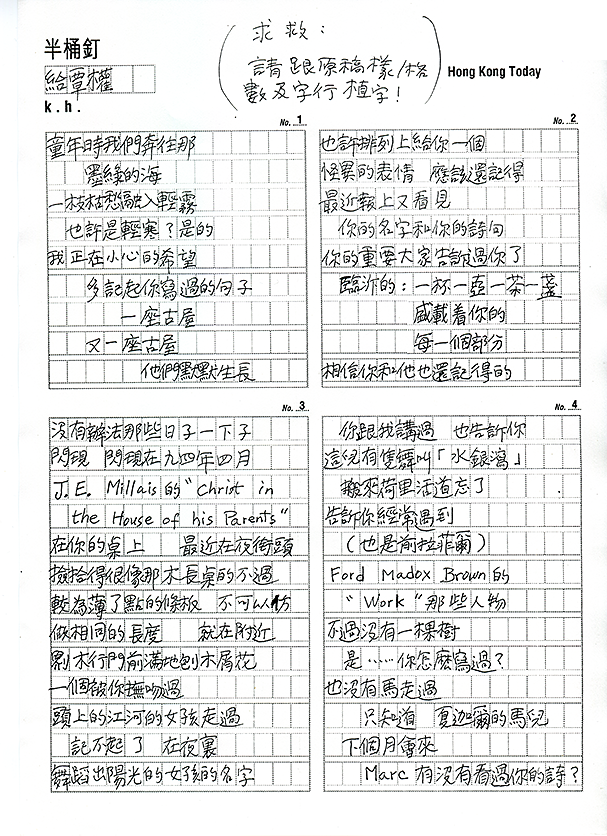 半桶釘
給覃權
k.h.
求救：
請跟原稿樣/格
數及字行植字！
Hong Kong Today
No. 1
童年時我們奔往那
墨綠的海
一枝枯愁融入輕霧
也許是輕寒？是的
我正在小心的希望
多記起你寫過的句子
一座古屋
又一座古屋
他們默默生長
No. 2
也許排列上給你一個
怪異的表情　應該還記得
最近報上又看見
你的名字和你的詩句
你的重要大家告訴過你了
臨沂的：一杯一壺一茶一盞
盛載着你的
每一個部分
相信你和他也還記得的
No. 3
沒有辦法那些日子一下子
閃現　閃現在九四年四月
J.E. Millais 的 "Christ in
the House of his Parents"
在你的桌上　最近在夜街頭
撿拾得很像那木長桌的不過
較為薄了點的條板　不可以彷
做相同的長度　就在附近
劉木行門前滿地刨木屑花
一個被你撫吻過
頭上的江河的女孩走過
記不起了　在夜裏
舞蹈出陽光的女孩的名字
No. 4
你跟我講過　也告訴你
這兒有隻舞叫「水銀瀉」
搬來荷里活道忘了
告訴你經常遇到
（也是前拉菲爾）
Ford Madox Brown 的
"Work" 那些人物
不過沒有一棵樹
是……你怎麼寫過？
也沒有馬走過
只知道　夏迦爾的馬兒
下個月會來
Marc 有沒有看過你的詩？